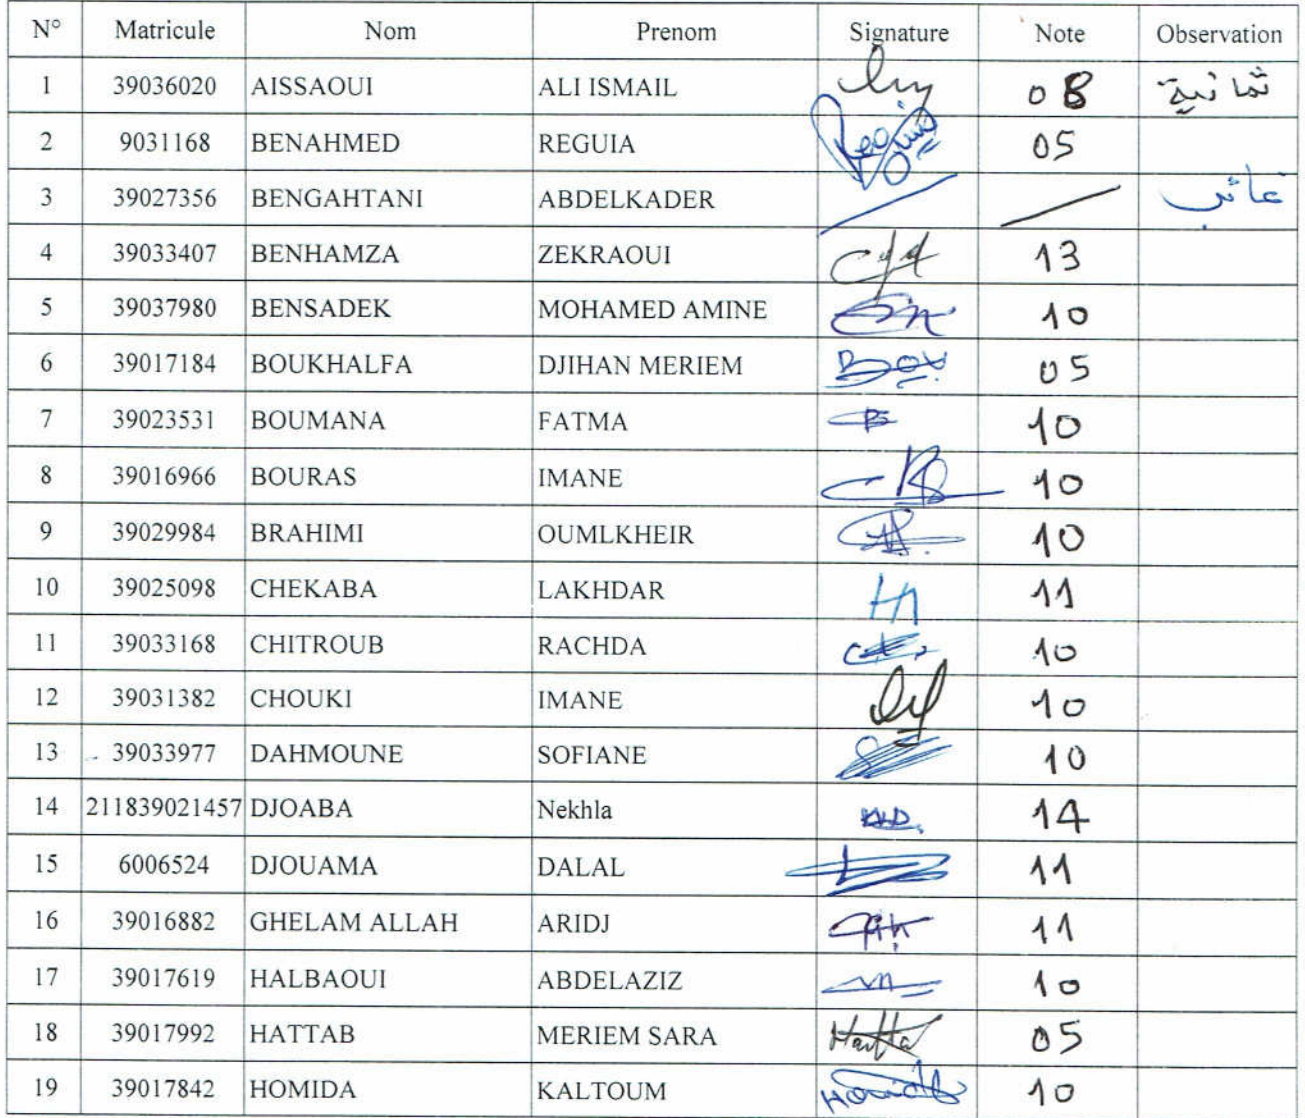 N° Matricule Nom Prenom Signature Note Observation
1 39036020 AISSAOUI ALI ISMAIL 08 ثمانية
2 9031168 BENAHMED REGUIA 05
3 39027356 BENGAHTANI ABDELKADER / / غائب
4 39033407 BENHAMZA ZEKRAOUI 13
5 39037980 BENSADEK MOHAMED AMINE 10
6 39017184 BOUKHALFA DJIHAN MERIEM 05
7 39023531 BOUMANA FATMA 10
8 39016966 BOURAS IMANE 10
9 39029984 BRAHIMI OUMLKHEIR 10
10 39025098 CHEKABA LAKHDAR 11
11 39033168 CHITROUB RACHDA 10
12 39031382 CHOUKI IMANE 10
13 39033977 DAHMOUNE SOFIANE 10
14 211839021457 DJOABA Nekhla 14
15 6006524 DJOUAMA DALAL 11
16 39016882 GHELAM ALLAH ARIDJ 11
17 39017619 HALBAOUI ABDELAZIZ 10
18 39017992 HATTAB MERIEM SARA 05
19 39017842 HOMIDA KALTOUM 10